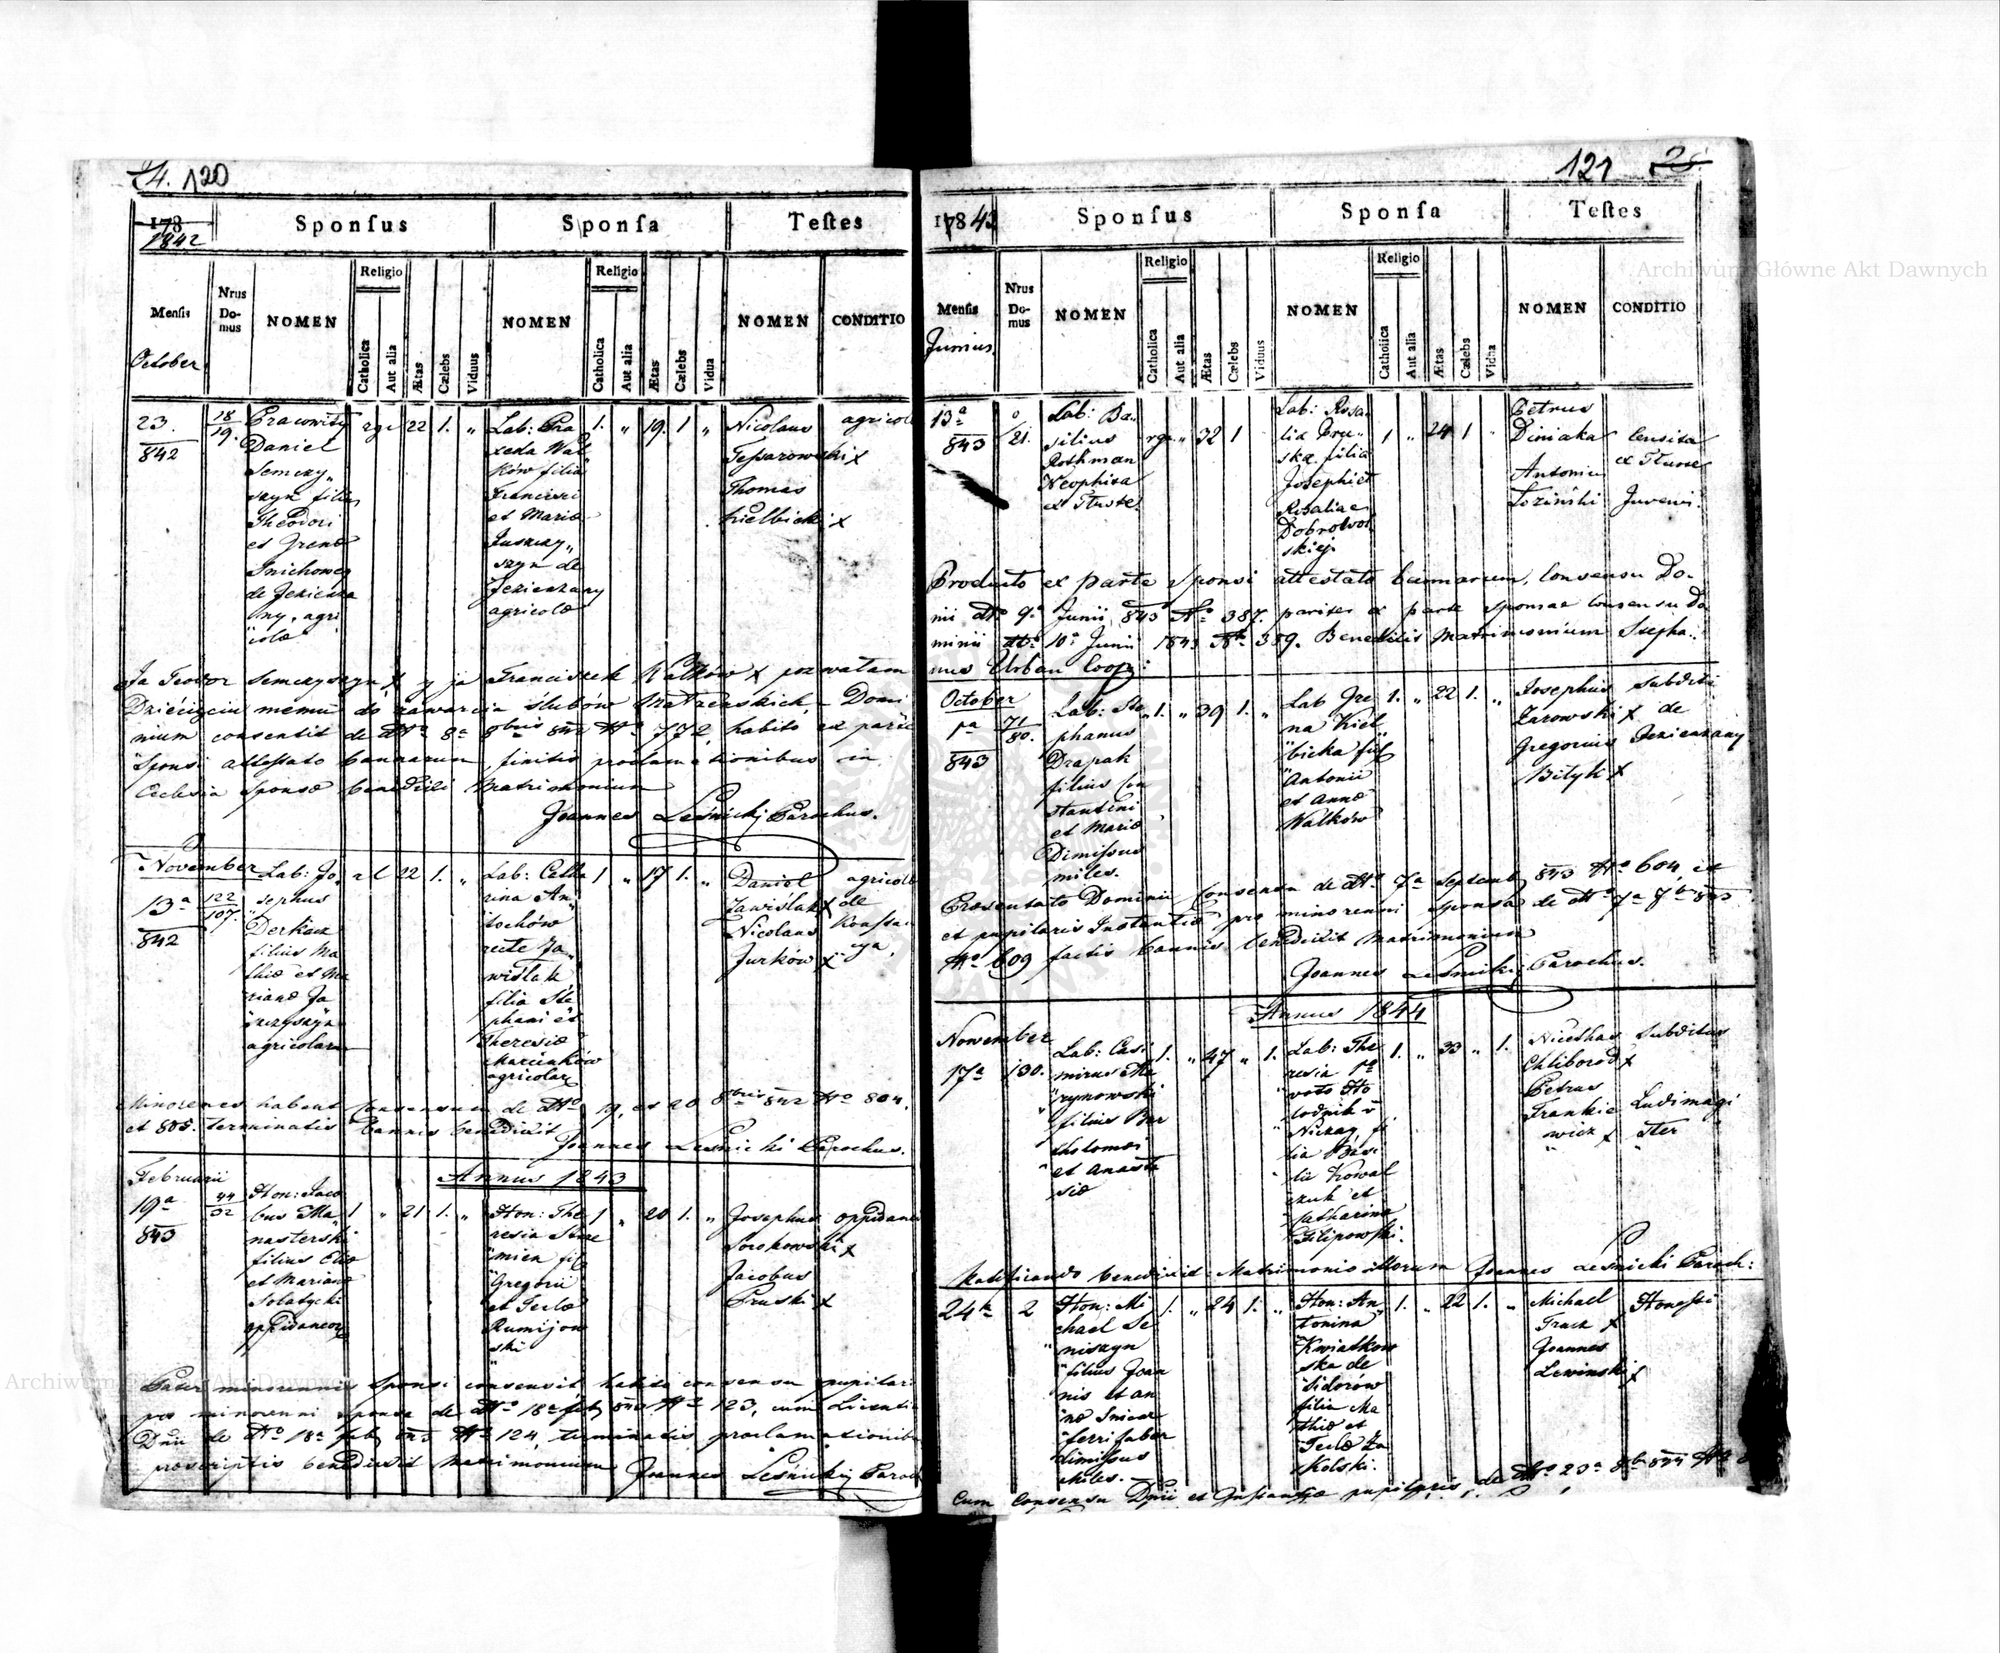 24. 120
178
1842
Sponſus
Sponſa
Teſtes
Menſis
October
Nrus Do-mus
NOMEN
Religio
Catholica
Aut alia
Ætas
Cælebs
Viduus
NOMEN
Religio
Catholica
Aut alia
Ætas
Cælebs
Vidua
NOMEN
CONDITIO
23.
842
18
19.
Pracowity
Daniel
Semczy„
szyn filius
Theodori
et Irenæ
de Jezierza
ny, agri
colæ
rgc
22
1.
„
Lab: Pra
xeda Wal
ków filia
Francisci
et Mariæ
Juszczy„
szyn de
Jezierzany
agricolæ
1.
„
19.
1
„
Nicolaus
Tessarowski x
Thomas
Kielbicki x
agricol
Ja Teodor Semczyszyn x y ja Franciszek Walków x pozwalam
Dziécięciu memu do zawarcia slubów Małżeńskich, – Domi
nium consentit de dtto 8a 8bris 842 No 772, habito ex parte
Sponsi attestato bannorum, finitis proclamationibus in
Ecclesia Sponsæ benedixi Matrimonium
Joannes Leśnicki Parochus.
November
13a
842
122
107.
Lab: Jo
sephus
Derkacz
filius Ma
thiæ et Ma
rianæ Ja
agricolarum
r l
22
1.
„
Lab: Catha
rina An
tochów
recte Za
wiślak
filia Ste
phani et
Theresiæ
Marcinków
agricolar
1
„
17
1.
„
Daniel
Zawiślak x
Nicolaus
Jurków x
agricol
de
Konstan
cya,
Minorenes habent Consensum de dtto 19, et 20 8bris 842 No 804,
et 805. terminatis bannis benedixit
Joannes Leśnicki Parochus.
Februarii
Annus 1843
19a
843
44
32
Hon: Jaco
bus Ma
nasterski
filius Eliæ
et Marianæ
Solatycki
oppidaneor
1
„
21
1.
„
Hon: The
resia Krze
mien fil
Gregorii
et Teclæ
Rumijow
ski
1
„
20
1.
„
Josephus
Sorokowski x
Jacobus
Pruski x
oppidane
Pater minorennis Sponsi consensit habito consensu pupilari
pro minorenni sponsa de dtto 18a feb 843 No 123, cum Licentia
Dnii de dtto 18a feb 843 No 124, terminatis proclamationibus
præscriptis benedixit Matrimonium Joannes Leśnicki Paroch
121 25.
1843
Sponſus
Sponſa
Teſtes
Menſis
Junius.
Nrus Do-mus
NOMEN
Religio
Catholica
Aut alia
Ætas
Cælebs
Viduus
NOMEN
Religio
Catholica
Aut alia
Ætas
Cælebs
Vidua
NOMEN
CONDITIO
13a
843
21.
Lab: Ba
silius
Rothman
Neophita
ex Tłuste.
rgc
„
32
1
Lab: Rosa
lia Pru„
ska filia
Josephi et
Rosaliae
Dobrowol
skiej.
1
„
24
1
„
Petrus
Diniaka
Antonius
Łoziński
Censita
ex Tłuste
Juvenis.
Producto ex parte Sponsi attestato bannorum, Consensu Do-
mii dto 9a Junii 843 No 387. pariter ex parte Sponsae Consensu Do
minii dto 10a Junii 1843 No 389. Benedixit Matrimonium Stepha:
nus Urban Coop:
October
1a
843
71
80.
Lab: Ste
phanus
Drapak
filius Con
stantini
et Mariæ
Dimissus
miles.
1.
„
39
1.
„
Lab Ire
na Kieł
bicka fil
Antonii
et Annæ
Walków
1.
„
22
1.
„
Josephus
Żarowski x
Gregorius
Bityk x
Subditi
de
Jezierzany
Præsentato Dominii Consensu de dtto 7a Septemb 843 No 604, et
et pupilaris Instantiæ pro minorenni Sponsa de dtto 7a 7br 843
No 609 factis bannis benedixit Matrimonium
Joannes Leśnicki Parochus.
Annus 1844
November
17a
130.
Lab: Casi
mirus Ma
rynowski
filius Bar
tholomei
et Anasta
siæ
1.
„
47
„
1.
Lab: The
resia 1o
voto Ho
lodnik
Niczay fi
lia Basi
lii Kowal
czuk et
Catharinæ
Filipowski.
1.
„
33
„
1.
Nicethas
Chliborod x
Petrus
Frankie
wicz x
Subditus
Ludimagi
ster
Ratificando benedixit Matrimonio illorum Joannes Leśnicki Paroch:
24ta
2
Hon: Mi
chael De
niszyn
filius Joan
nis et An
næ Sniear
ferri faber
dimissus
Miles.
1.
„
24
1.
„
Hon: An
tonina
Kwiatkow
ska de
Sidorów
filia Ma
thiæ et
Teclæ Za
Kolski.
1.
„
22
1.
„
Michael
Tracz x
Joannes
Lewinski x
Honesti
Cum Consensu Dnii et Instantiæ pupilaris, de dtto 23a 8br 844 No
Archiwum Główne Akt Dawnych
Archiwum Główne Akt Dawnych